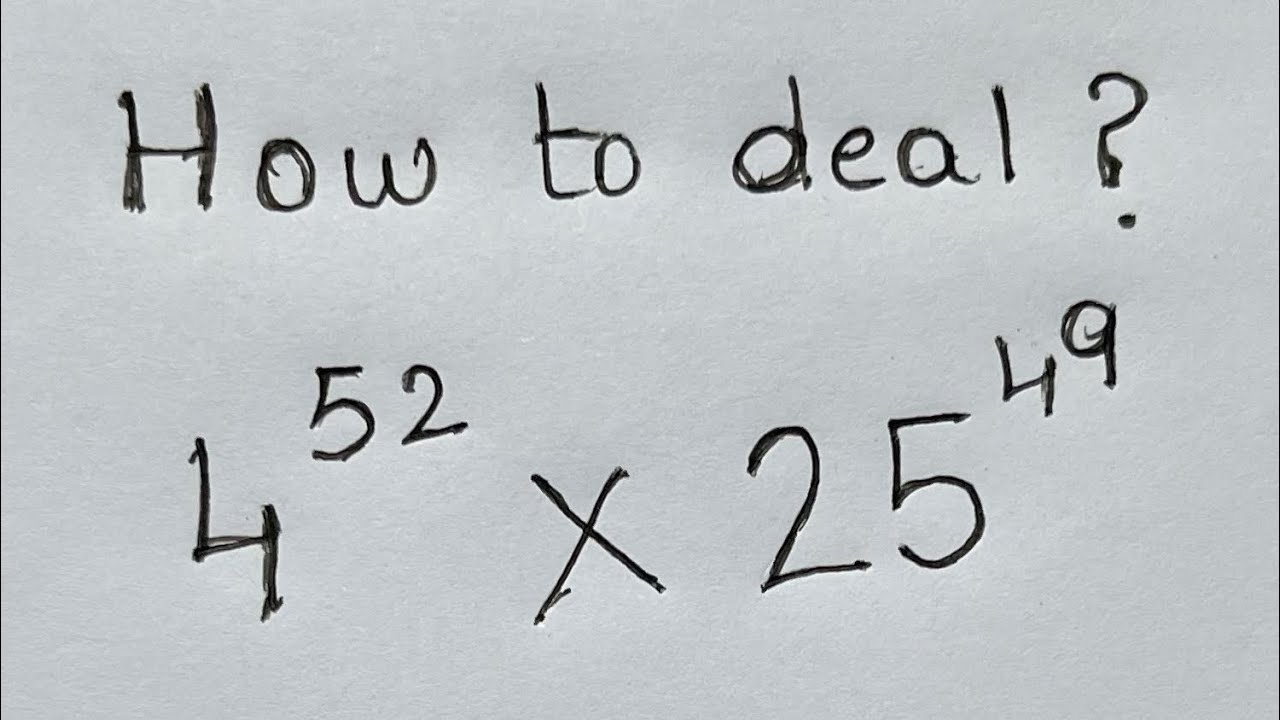 How to deal ?
4^52 × 25^49